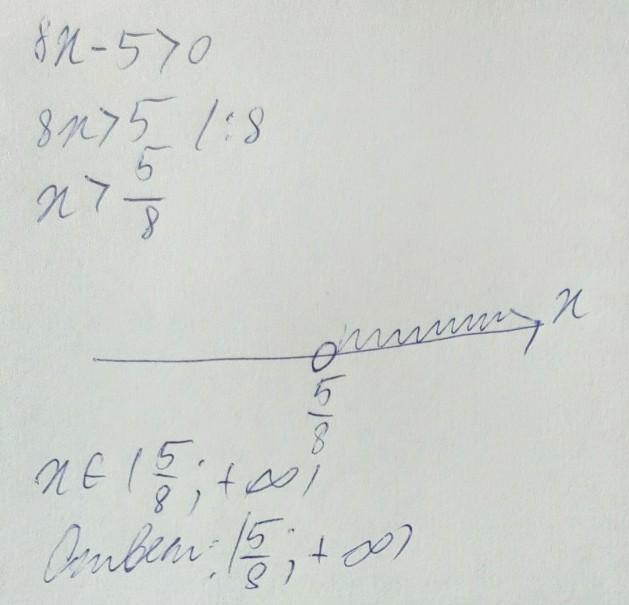 8x - 5 > 0
8x > 5 | : 8
x > 5/8
x
5/8
x ∈ (5/8; +∞)
Ответ: (5/8; +∞)